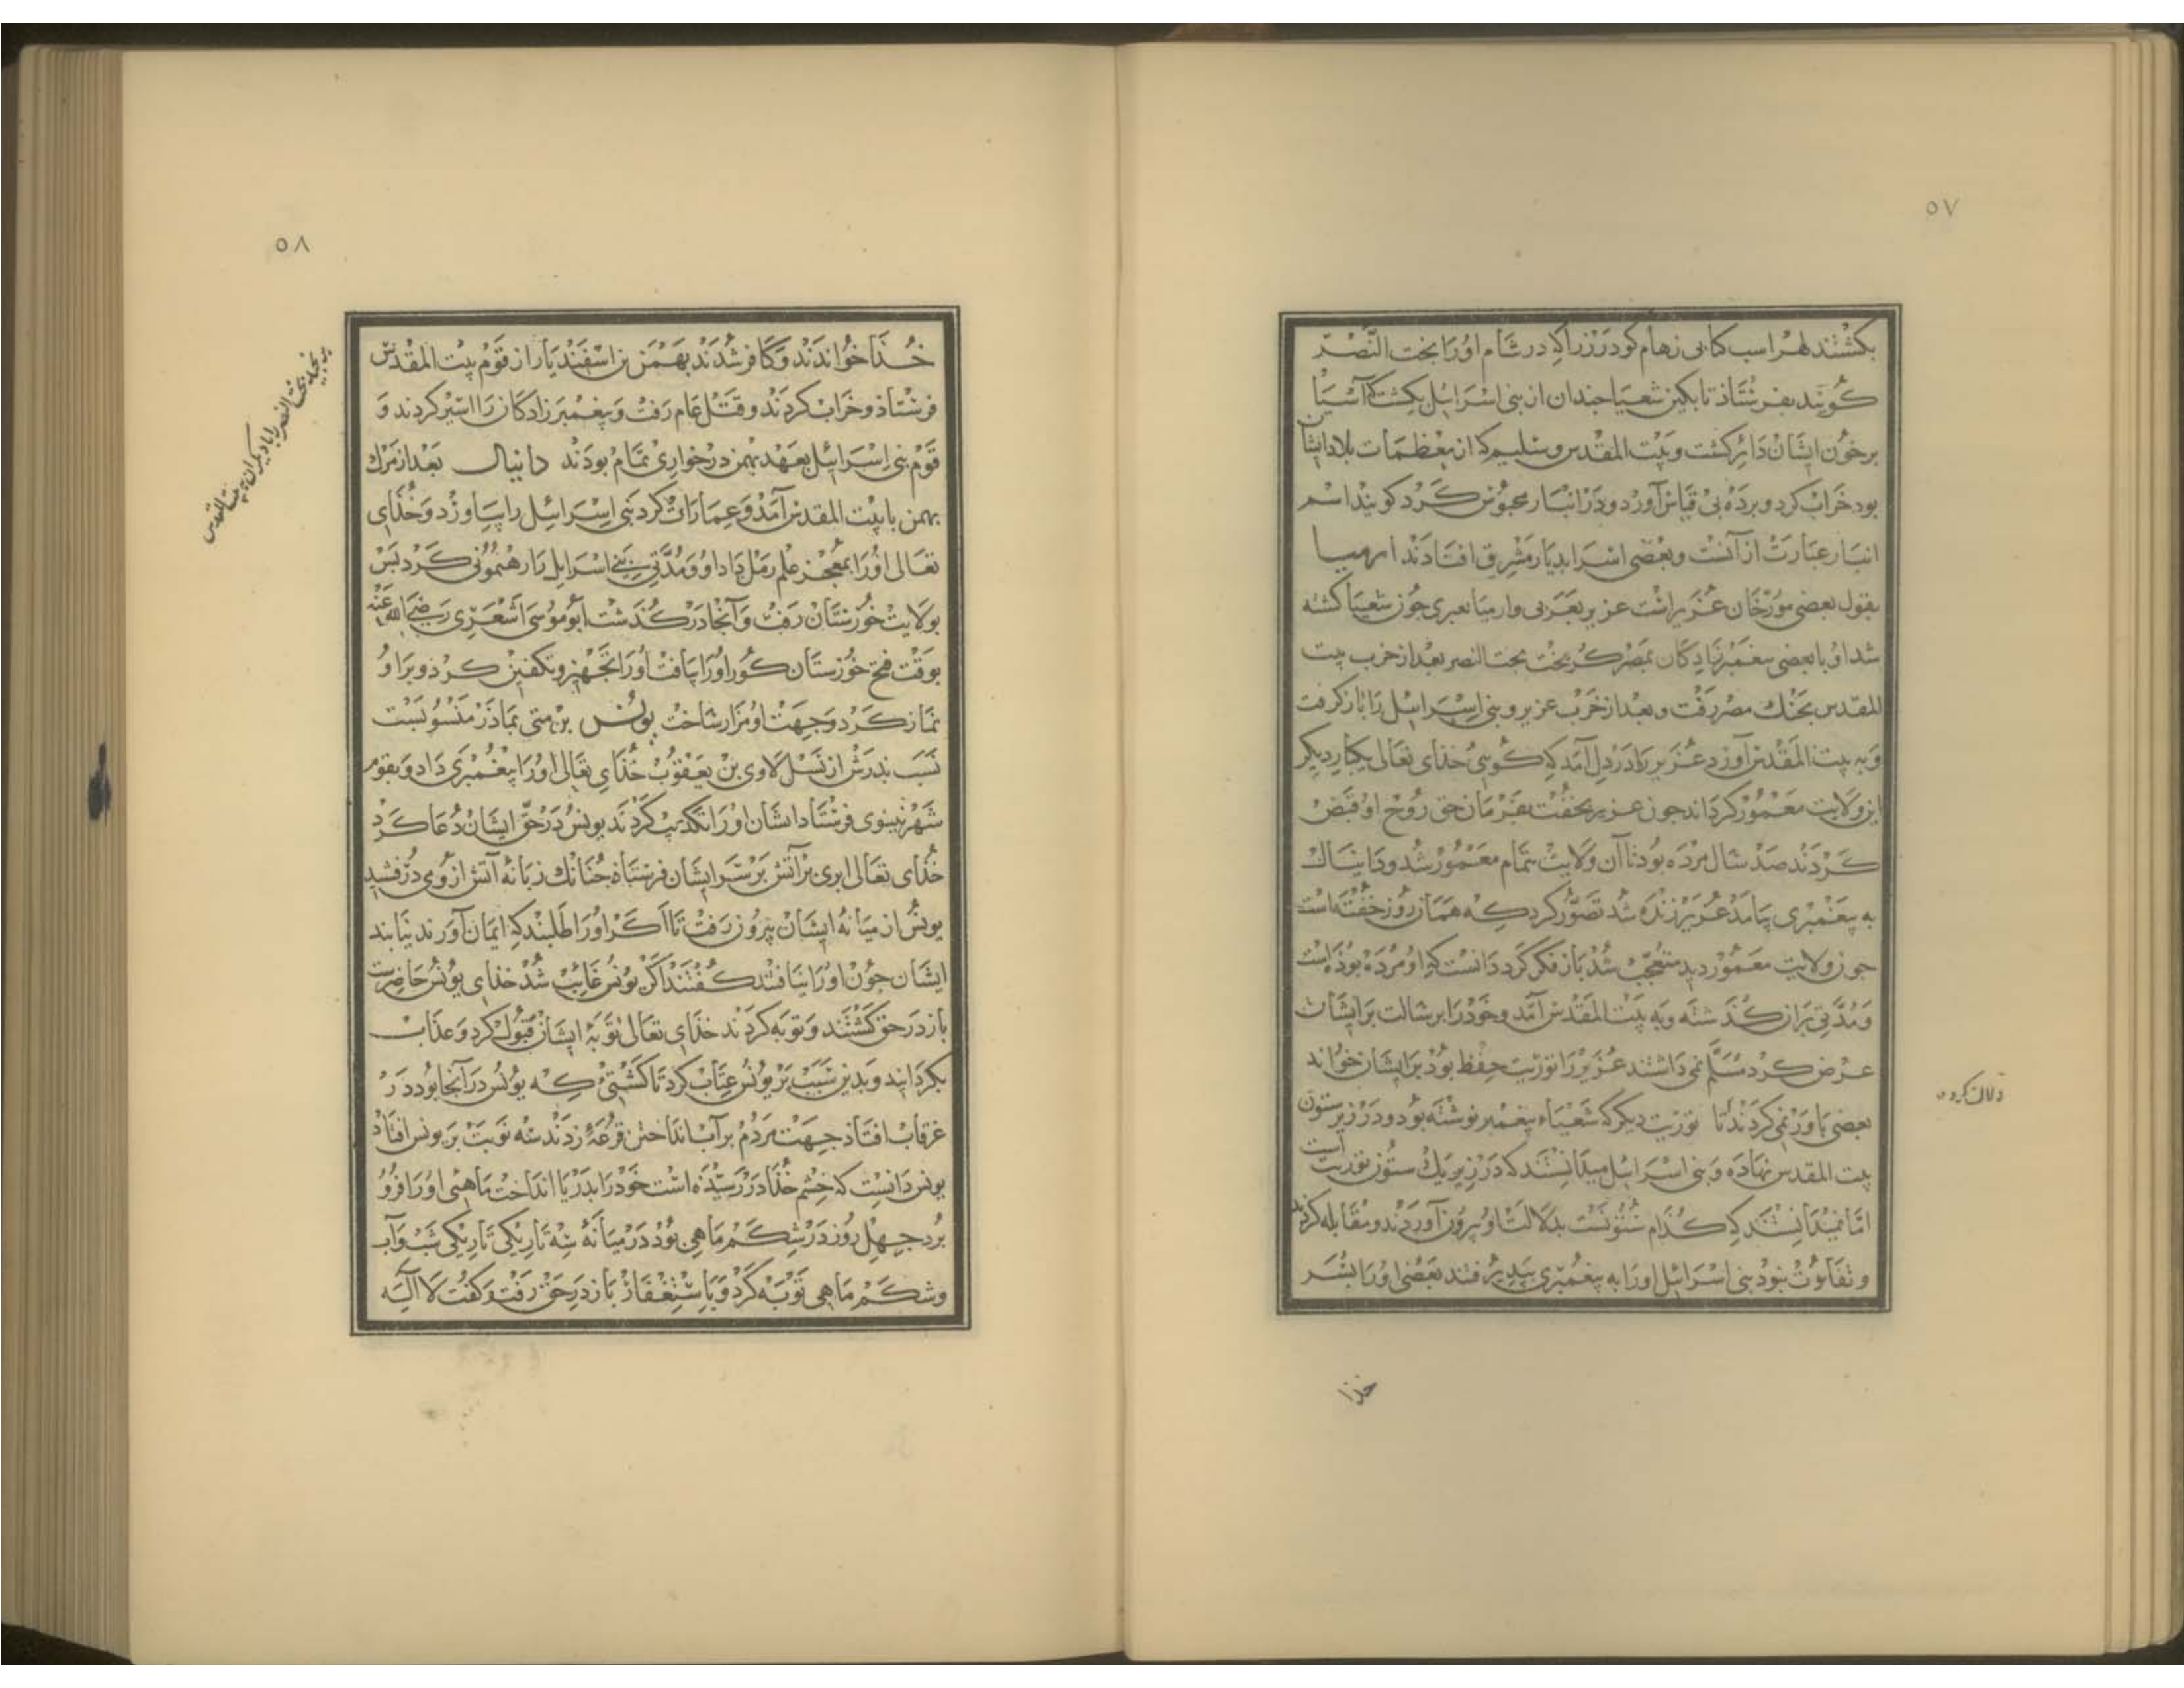 ٥٧
بکشتند لهراسب کیانی رهام کودرز را که در شام او را بخت النصر
کویند بفرستاذ تا بکین شعیا جندان از بنی اسرائیل بکشت که آسیا
برخون ایشان دائر کشت و بیت المقدس و سلیم که از معظمات بلاد ایشان
بود خراب کرد و برده بی قیاس آورد و در انبار محبوس کرد کویند اسم
انبار عبارت از آنست و بعضی اسرا بدیار مشرق افتادند ارمیا
بقول بعضی مورخان عزیر است عزیر بعربی و ارمیا بعبری جون شعیا کشته
شد او با بعضی بیغمبرزادکان بمصر کریخت بخت النصر بعد از خرب بیت
المقدس بجنك مصر رفت و بعد از خرب عزیر و بنی اسرائیل را باز کرفت
و به بیت المقدس آورد عزیر را در دل آمد که کوئی خدای تعالی یکبار دیکر
این ولایت معمور کرداند جون عزیر بخفت بفرمان حق روح او قبض
کردند صد سال مرده بود تا آن ولایت تمام معمور شد و دانیال
به پیغمبری بیامد عزیر زنده شد تصور کرد که همان روز خفته است
جون ولایت معمور دید متعجب شد باز فکر کرد دانست که او مرده بوذه است
و مدتی بر آن کذشته و به بیت المقدس آمد و خود را برسالت بر ایشان
عرض کرد مسلم نمی داشتند عزیر را توریت حفظ بود بر ایشان خواند
بعضی باور نمی کردند تا توریت دیکر که شعیاء پیغمبر نوشته بود و در زیر ستون
بیت المقدس نهاده و بنی اسرائیل میدانستند که در زیر یك ستون توریت است
اما نمیدانستند که کدام ستونست بدلالت او بیرون آوردند و مقابله کردند
و تفاوت نبود بنی اسرائیل او را به پیغمبری بپذیرفتند بعضی او را بسر
دلالت کردن
خذا
٥٨
خذا خواندند و کافر شدند بهمن بن اسفندیار از قوم بیت المقدس
فرستاذ و خراب کردند و قتل عام رفت و پیغمبرزادکان را اسیر کردند و
قوم بنی اسرائیل بعهد بهمن در خواری تمام بودند دانیال بعد از مرك
بهمن با بیت المقدس آمد و عمارات کرد بنی اسرائیل را بیاورد و خذای
تعالی او را بمعجز علم رمل داد او و مدتی بنی اسرائیل را رهنمونی کرد بس
بولایت خوزستان رفت و آنجا درکذشت ابو موسی اشعری رضی الله عنه
بوقت فتح خوزستان کور او را یافت او را تجهیز و تکفین کرد و بر او
نماز کرد و جهت او مزار ساخت یونس بن متی بماذر منسوبست
نسب بدرش از نسل لاوی بن یعقوب خذای تعالی او را پیغمبری داد و بقوم
شهر نینوی فرستاد ایشان او را تکذیب کردند یونس در حق ایشان دعا کرد
خذای تعالی ابری بر آتش بر سر ایشان فرستاد جنانك زبانه آتش از وی درفشید
یونس از میانه ایشان بیرون رفت تا اکر او را طلبند که ایمان آورند نیابند
ایشان جون او را نیافتند کفتند اکر یونس غایب شد خذای یونس حاضرست
باز در حق کشتند و توبه کردند خذای تعالی توبه ایشان قبول کرد و عذاب
بکردانید و بدین سبب بر یونس عتاب کرد تا کشتی که یونس در آنجا بود در
غرقاب افتاذ جهت مردم بر آب انداختن قرعه زدند سه نوبت بر یونس افتاذ
یونس دانست که خشم خذا در رسیده است خود را بدریا انداخت ماهئی او را فرو
برد جهل روز در شکم ماهی بود در میانه سه تاریکی تاریکی شب و آب
و شکم ماهی توبه کرد و با ستغفار باز در حق رفت و کفت لا اله